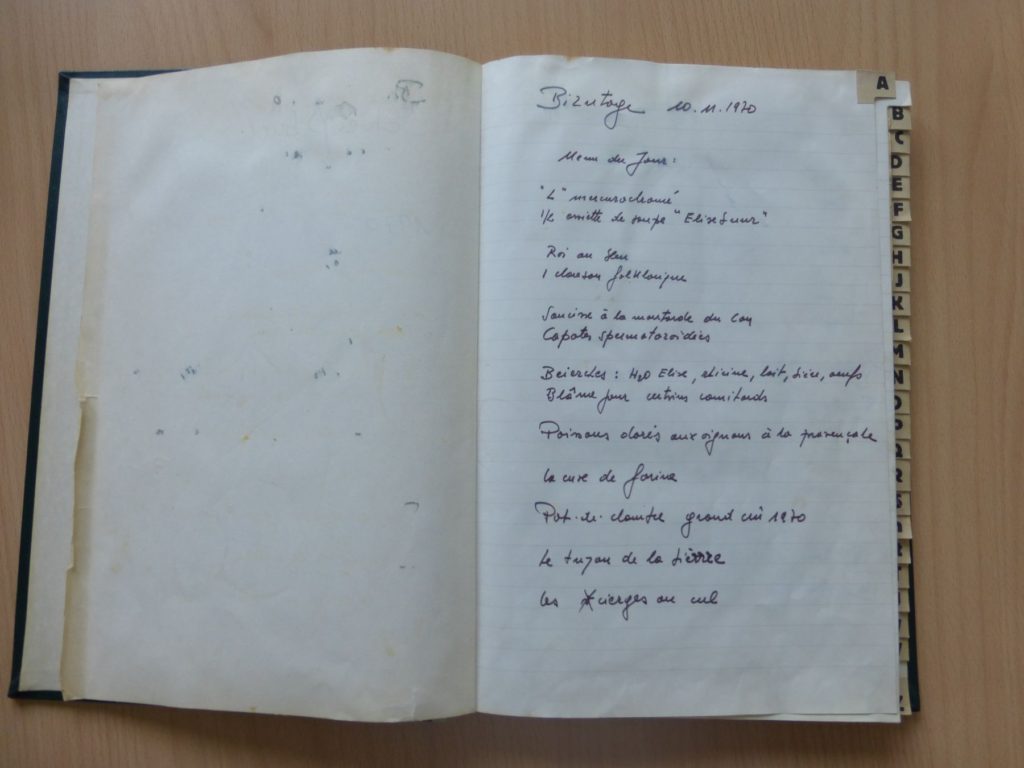 Bizutage 10.11.1970
Menu du Jour:
"L" mercurochromé
1/2 assiette de soupe "Elisesuur"
Roi au
1 chanson folklorique
Saucisse à la moutarde du
Capotes spermatozoïdées
: H2O Elixe, , lait, bière, oeufs
Blâme pour certains comitards
Poissons dorés aux oignons à la provençale
la cuve de farine
Pot-de-chambre grand crû 1970
le tuyau de la bièrre
les cierges au cul
A
B
C
D
E
F
G
H
J
K
L
M
N
O
P
Q
R
S